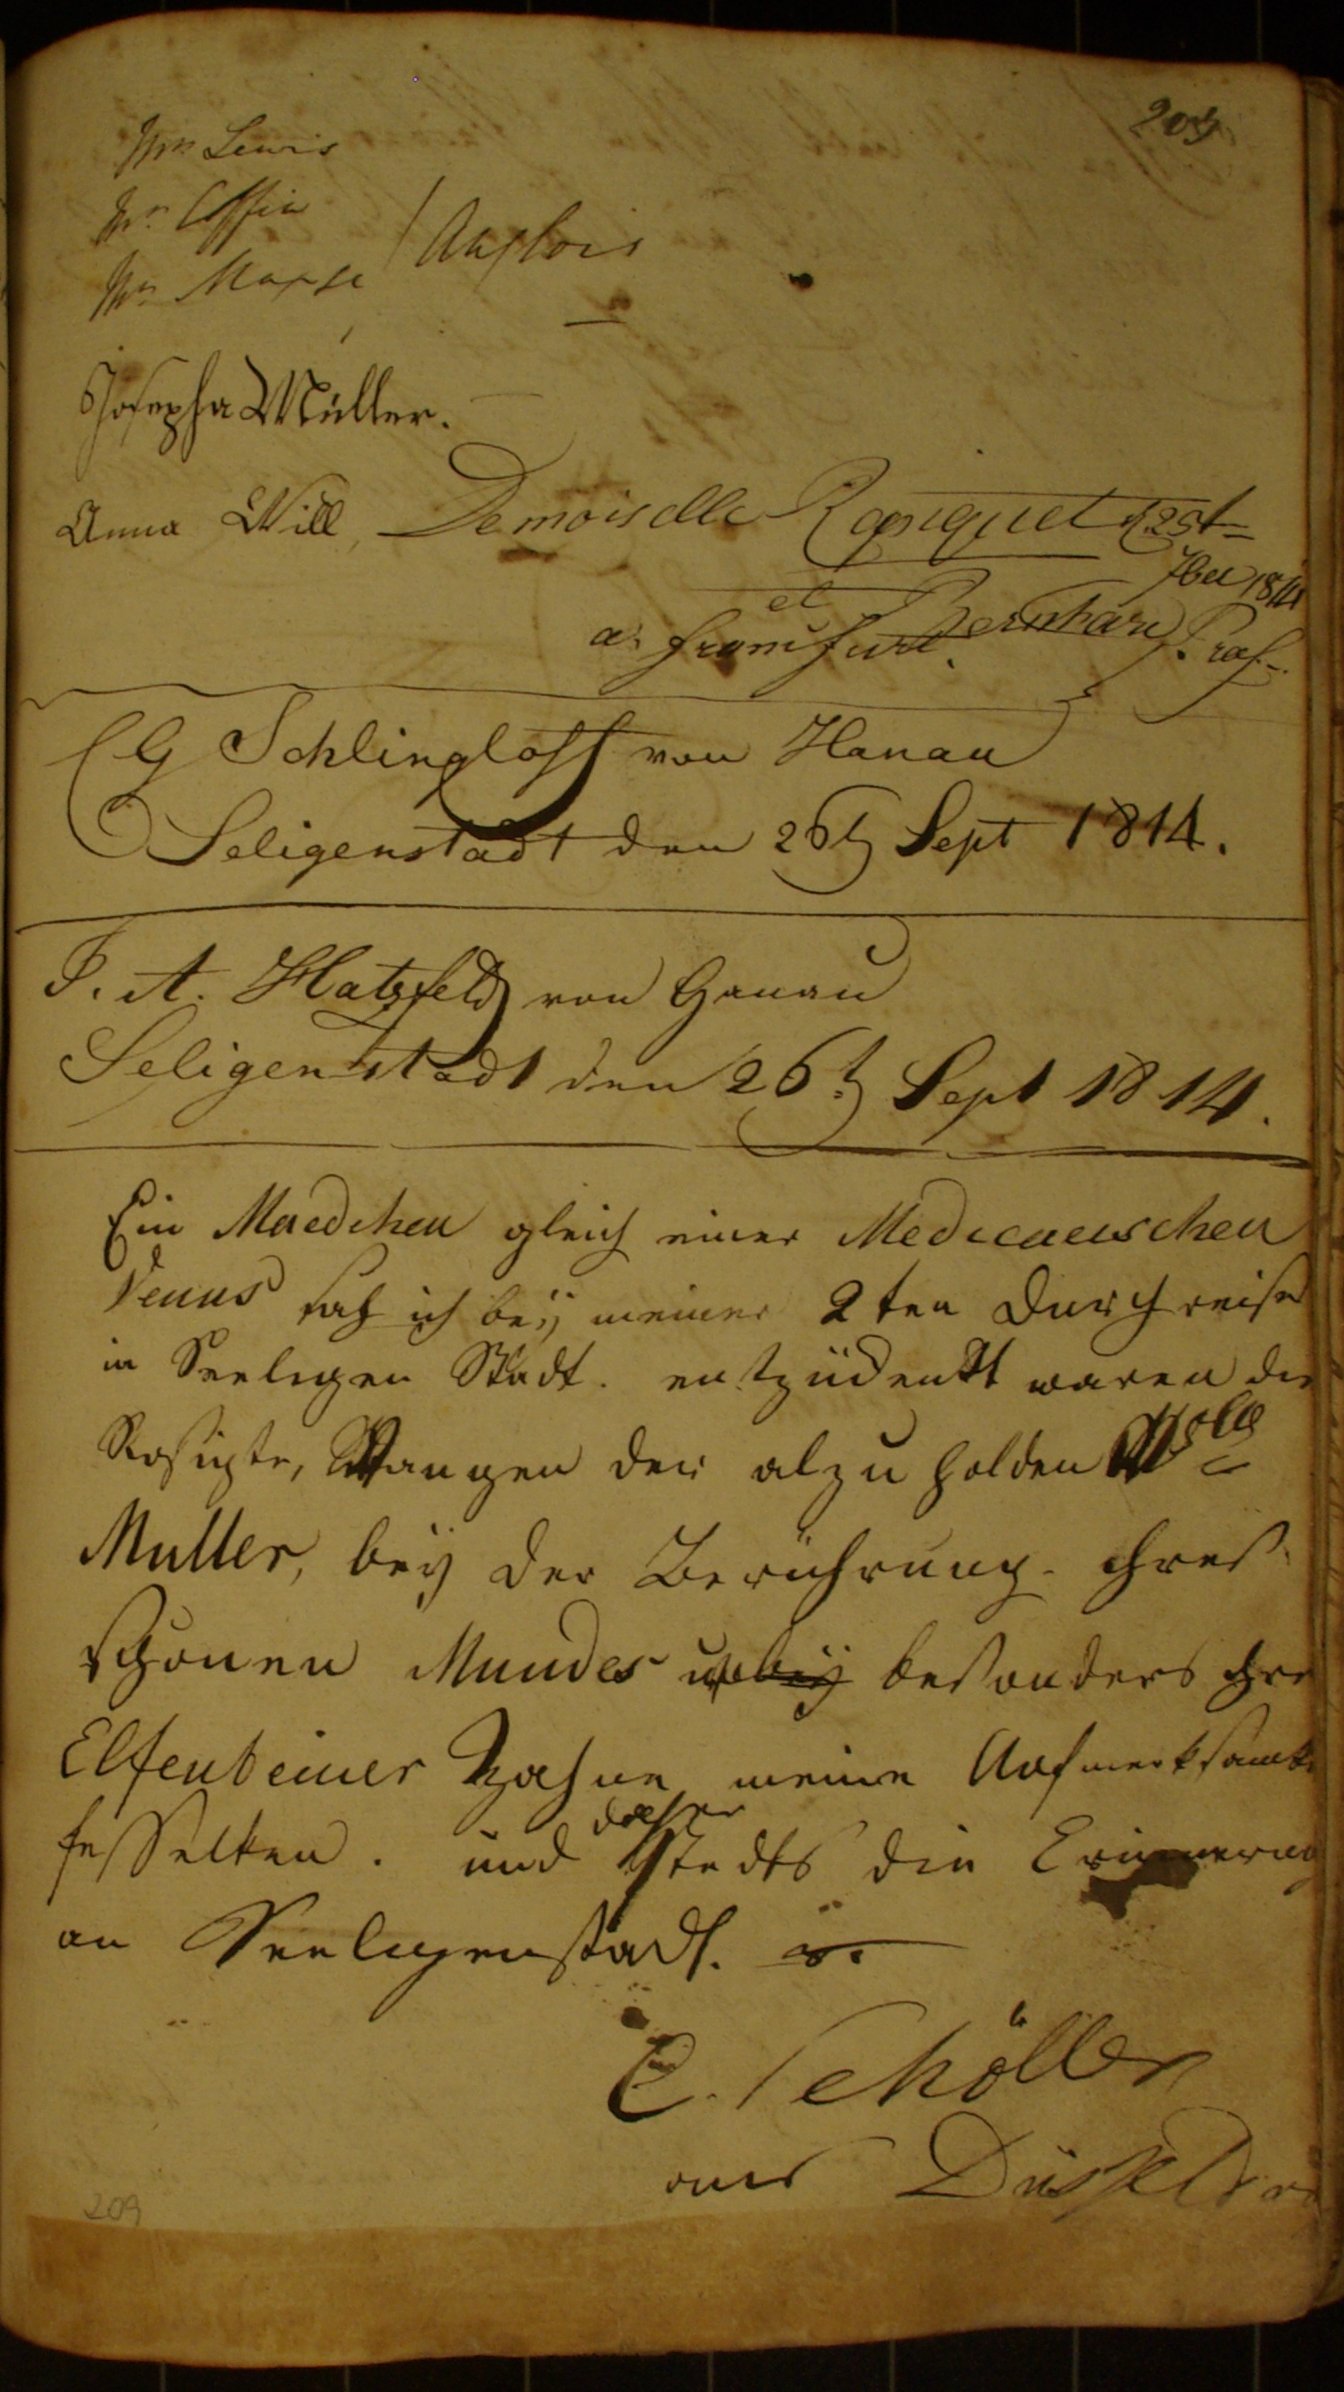 209
Mrs Lewis
Mr Coffin
Anglois
Josepha Müller.
Anna Will, Demoiselle
7ber 1814
et Bernhard Prof.
a. Francfurt.
CG Schlingloff von Hanau
Seligenstadt den 26t Sept 1814.
J. A. Hatzfeld von Hanau
Seligenstadt den 26t Sept 1814.
Ein Maedchen gleich einer Mediceneischen
Venus sah ich beÿ meiner 2ten Durchreise
in Seeligen Stadt. entzüdenkt waren die
Rosigte, Wangen der alzu holden
Muller, beÿ der Berührung ihres
schönen Mundes besonders ihre
Elfenbeiner Zähne meine Aufmerksamk
fesselten. und daher stedts die Erinnerung
an Seeligenstadt.
C. Schöller
aus Düsseldor
209